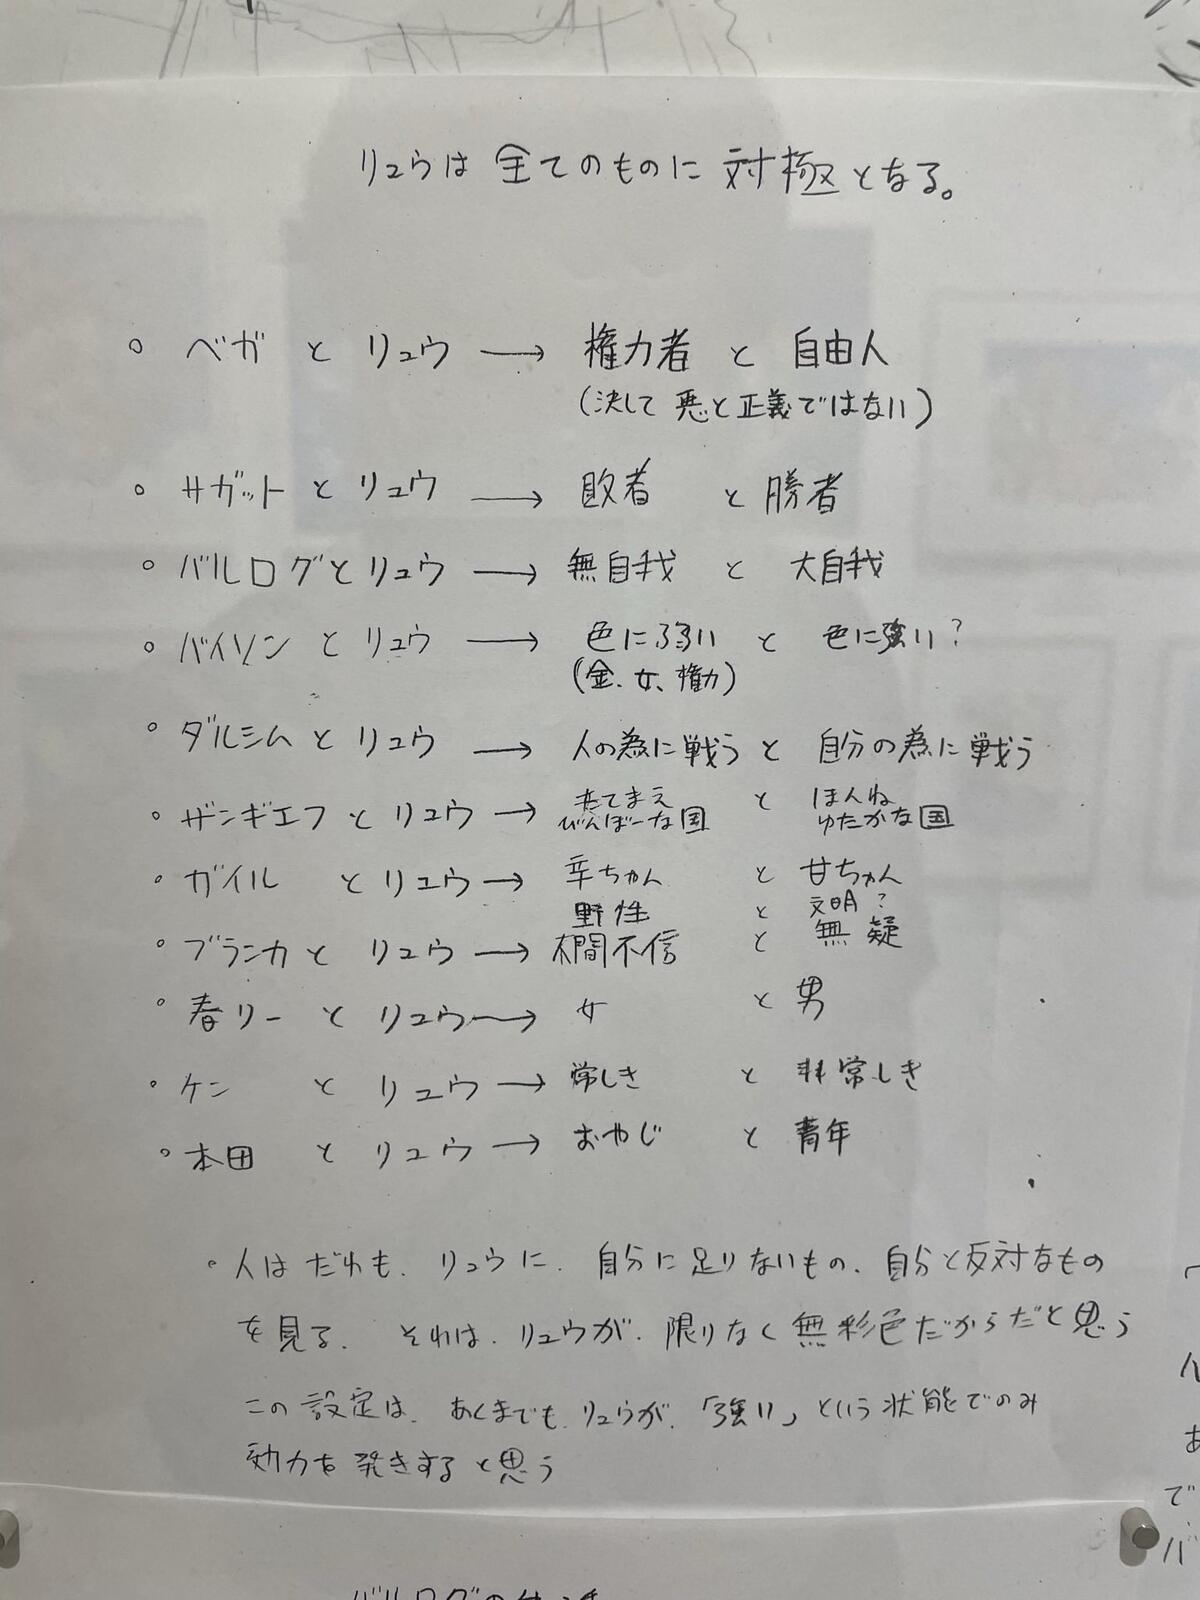 リュウは全てのものに対極となる。
。ベガとリュウ→権力者と自由人
(決して悪と正義ではない)
。サガットとリュウ→敗者と勝者
。バルログとリュウ→無自我と大自我
。バイソンとリュウ→色に弱いと色に強い?
(金、女、権力)
。ダルシムとリュウ→人の為に戦うと自分の為に戦う
。ザンギエフとリュウ→たてまえとほんね
びんぼーな国 ゆたかな国
。ガイルとリュウ→辛ちゃんと甘ちゃん
野性と文明?
。ブランカとリュウ→人間不信と無疑
。春リーとリュウ→女と男
。ケンとリュウ→常しきと非常しき
。本田とリュウ→おやじと青年
。人はだれも、リュウに、自分に足りないもの、自分と反対なもの
を見る、それは、リュウが、限りなく無彩色だからだと思う
この設定は、あくまでも、リュウが、「強い」という状態でのみ
効力を発きすると思う
バルログの